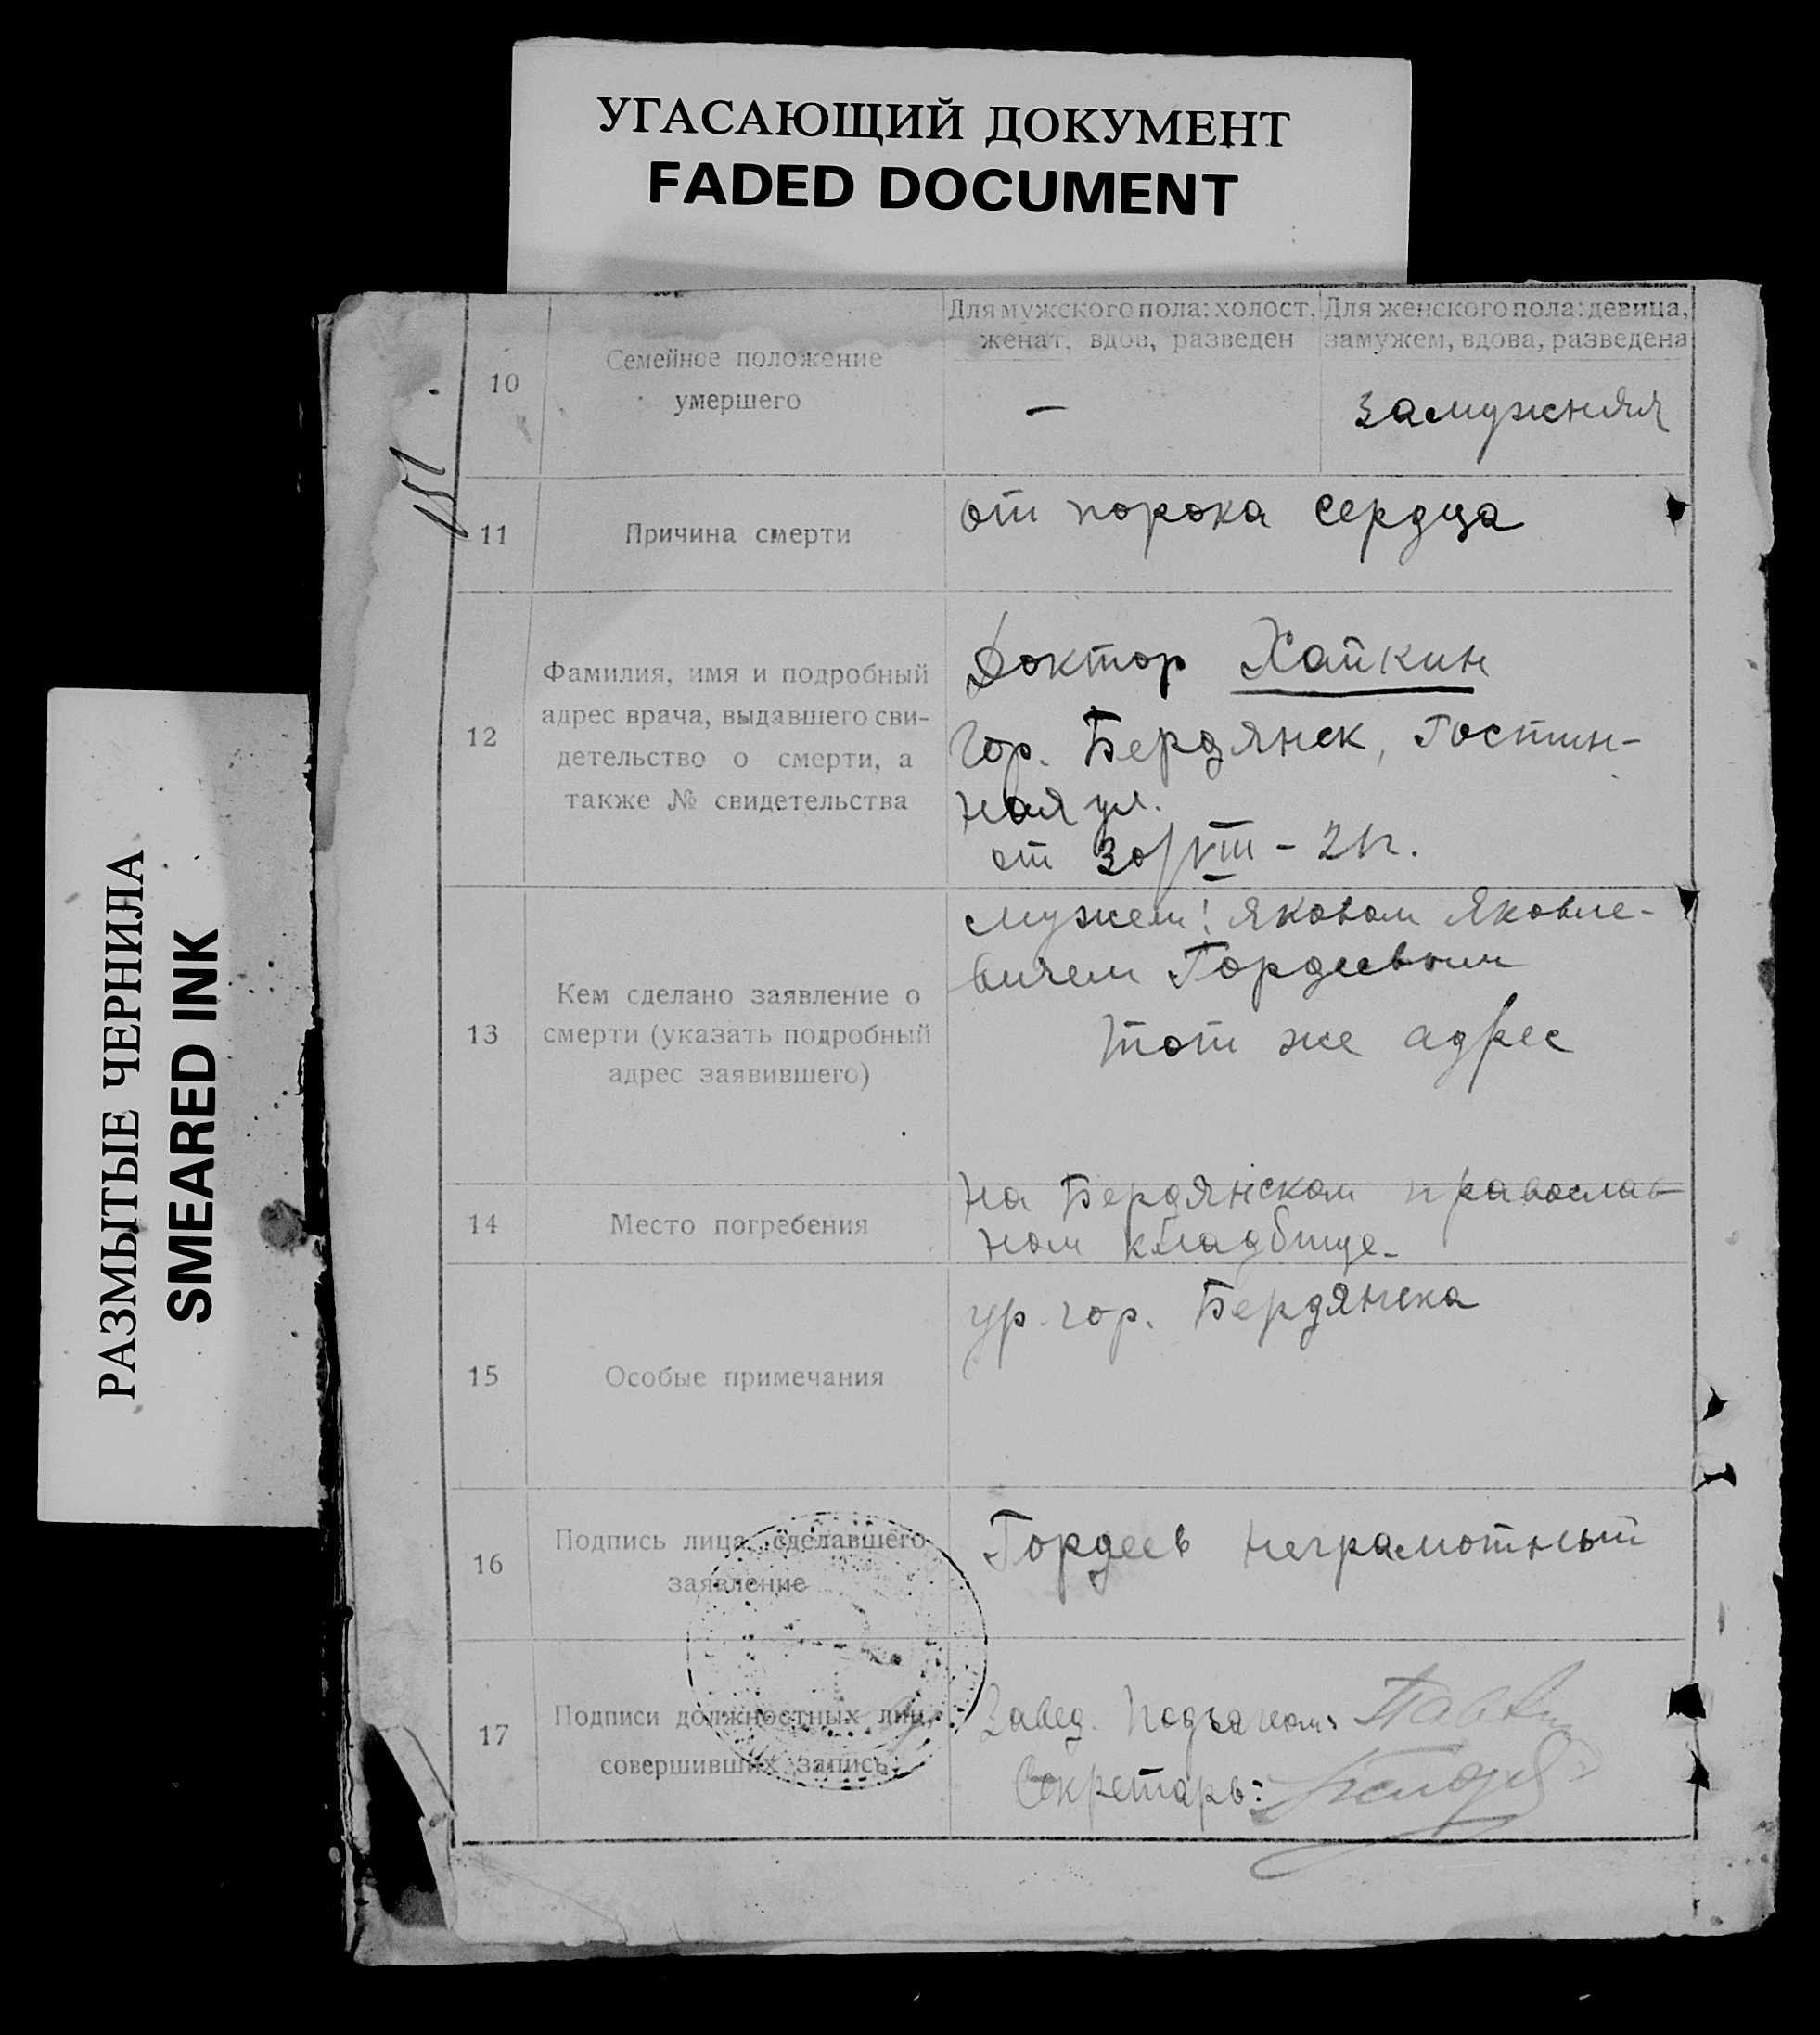 УГАСАЮЩИЙ ДОКУМЕНТ
FADED DOCUMENT
РАЗМЫТЫЕ ЧЕРНИЛА
SMEARED INK
151
10
Семейное положение
умершего
Для мужского пола: холост,
женат, вдов, разведен
—
Для женского пола: девица,
замужем, вдова, разведена
замужняя
11
Причина смерти
от порока сердца
12
Фамилия, имя и подробный
адрес врача, выдавшего сви-
детельство о смерти, а
также № свидетельства
Доктор Хайкин
гор. Бердянск, Гостин-
ная ул.
от 30/VIII – 21г.
13
Кем сделано заявление о
смерти (указать подробный
адрес заявившего)
мужем! Яковом Яковле-
вичем Гордеевым
тот же адрес
14
Место погребения
на Бердянском православ-
ном кладбище
15
Особые примечания
ур. гор. Бердянска
16
Подпись лица, сделавшего
заявление
Гордеев неграмотный
17
Подписи должностных лиц,
совершивших запись
Завед. Подзагсом:
Секретарь: